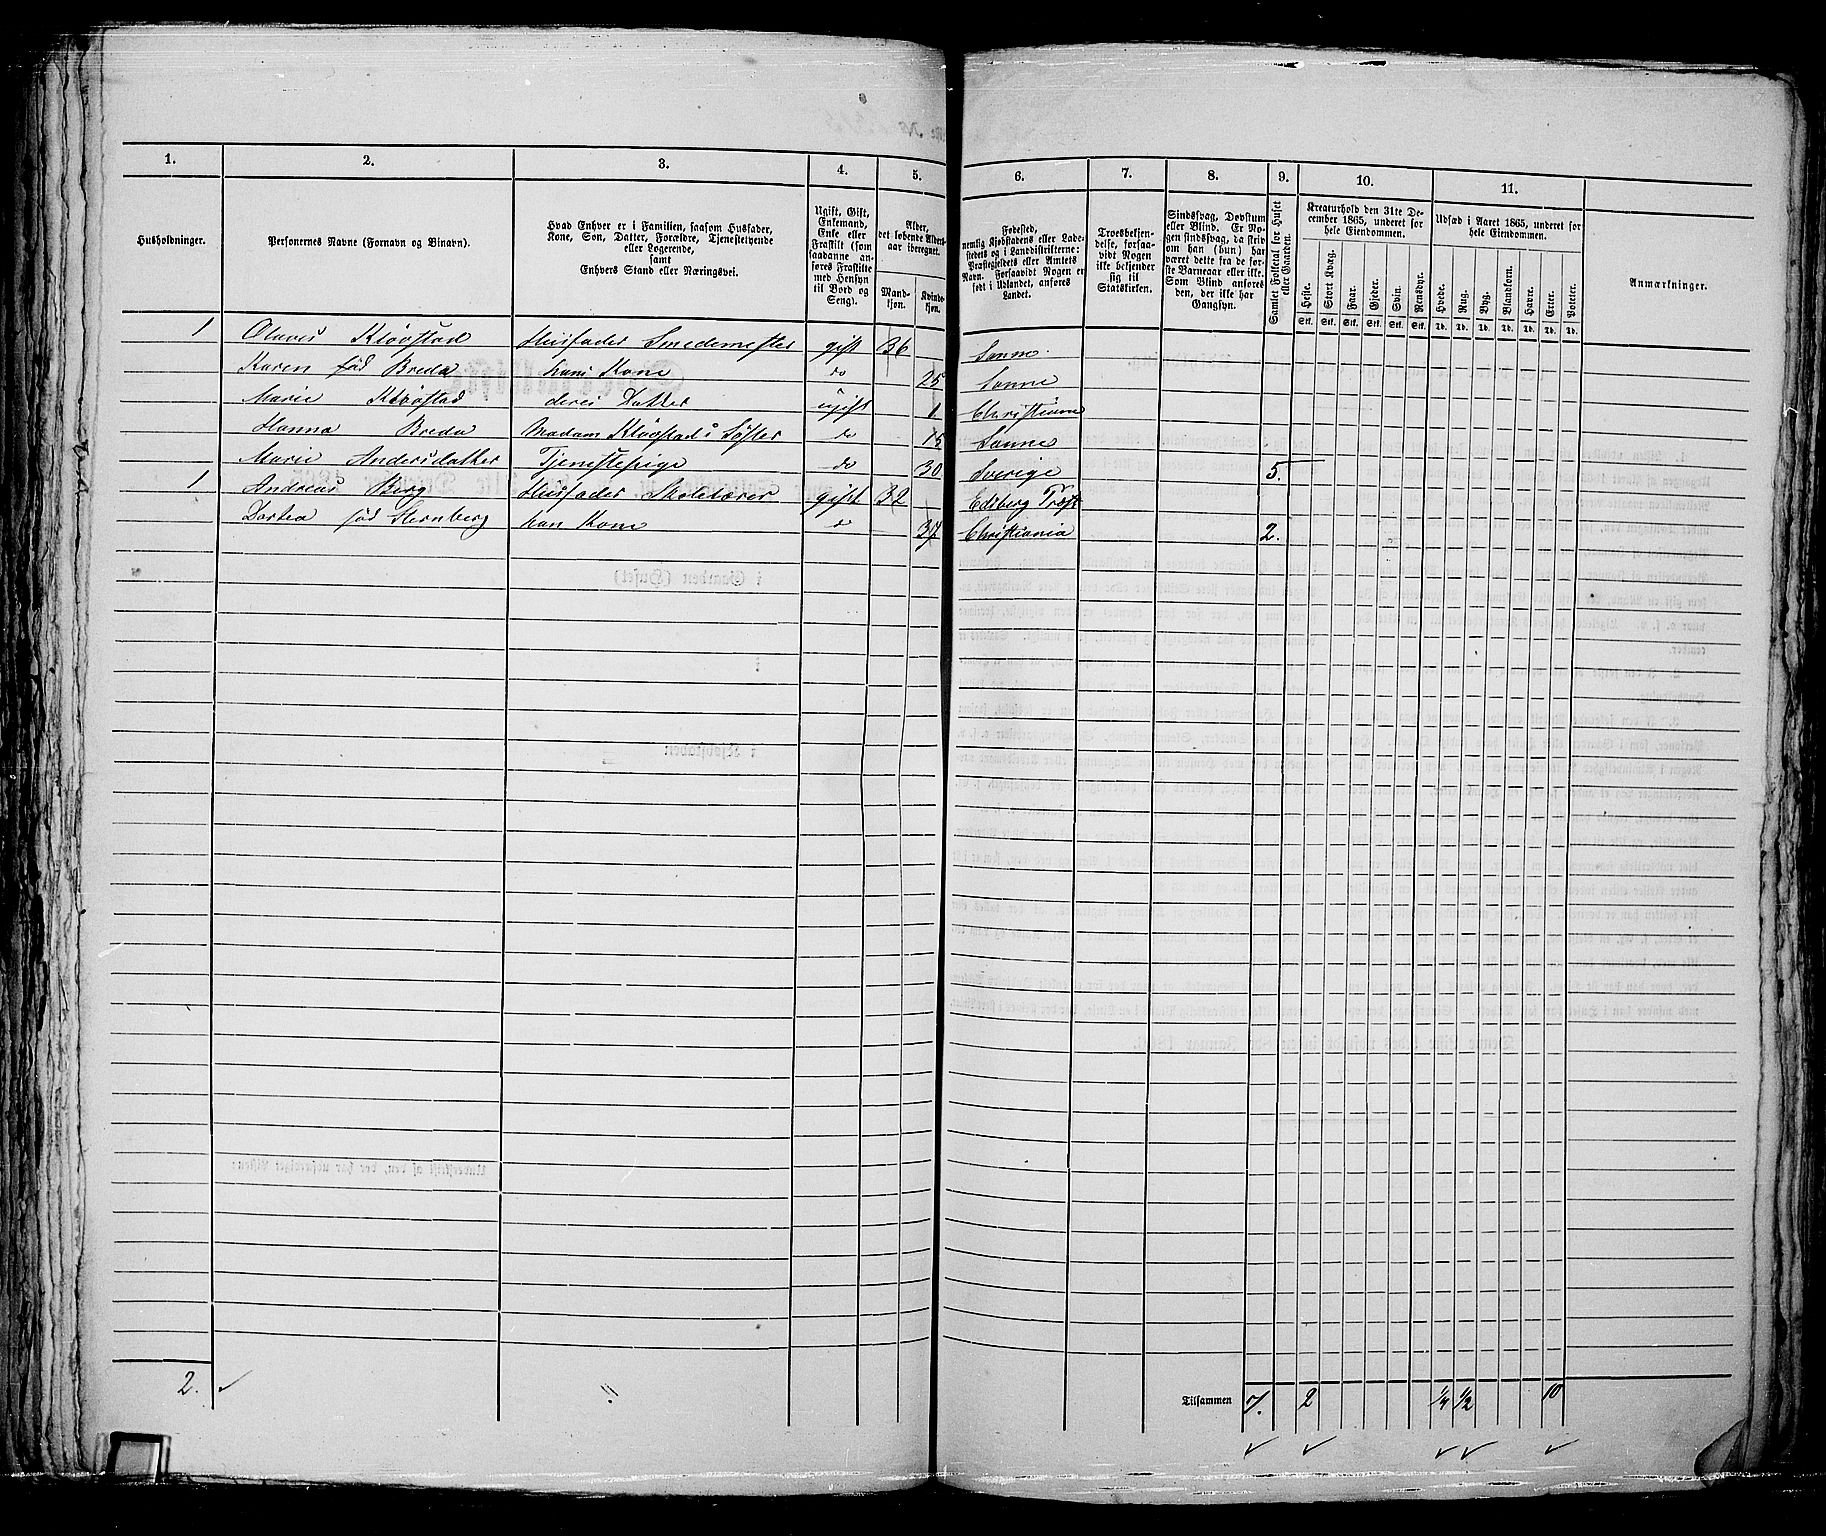 1. 2. 3. 4. 5. 6. 7. 8. 9. 10. 11.
Husholdninger.
Personernes Navne (Fornavn og Binavn).
Hvad Enhver er i Familien, saasom Husfader,
Kone, Søn, Datter, Forældre, Tjenestetyende
eller Logerende,
samt
Enhvers Stand eller Næringsvei.
Ugift, Gift,
Enkemand,
Enke eller
Fraskilt (som
saadanne an-
føres Fraskilte
med Hensyn
til Bord og
Seng).
Alder,
det løbende Alders-
aar iberegnet.
Mand-
kjøn.
Kvinde-
kjøn.
Fødested,
nemlig Kjøbstadens eller Lade-
stedets og i Landdistrikterne:
Præstegjeldets eller Amtets
Navn. Forsaavidt Nogen er
født i Udlandet, anføres
Landet.
Troesbekjen-
delse, forsaa-
vidt Nogen
ikke bekjender
sig til
Statskirken.
Sindssvag, Døvstum
eller Blind. Er No-
gen sindssvag, da skri-
ves om han (hun) har
været dette fra de før-
ste Barneaar eller ikke.
Som Blind anføres
den, der ikke har
Gangsyn.
Samlet Folketal for Huset
eller Gaarden.
Kreaturhold den 31te De-
cember 1865, underet for
hele Eiendommen.
Heste. Stort Kvæg. Faar. Gjeder. Svin. Rensdyr.
Stk. Stk. Stk. Stk. Stk. Stk.
Udsæd i Aaret 1865, underet for
hele Eiendommen.
Hvede. Rug. Byg. Blandkorn. Havre. Erter. Poteter.
Td. Td. Td. Td. Td. Td. Td.
Anmærkninger.
1 Olaves Kløvstad Husfader Smedemester gift 36 Sonne
Karen fød Breda hans Kone do 25 Sonne
Marie Kløvstad deres Datter ugift 1 Christiania
Hanna Breda Madam Kløvstads Søster do 15 Sonne
Marie Andersdatter Tjenestepige do 30 Sverige 5.
1 Andreas Berg Husfader Skolelærer gift 32 Edsberg Præst
Dortea fød Sternberg han Kone do 37 Christiania 2.
2. Tilsammen 7. 2 1/4 1/2 10